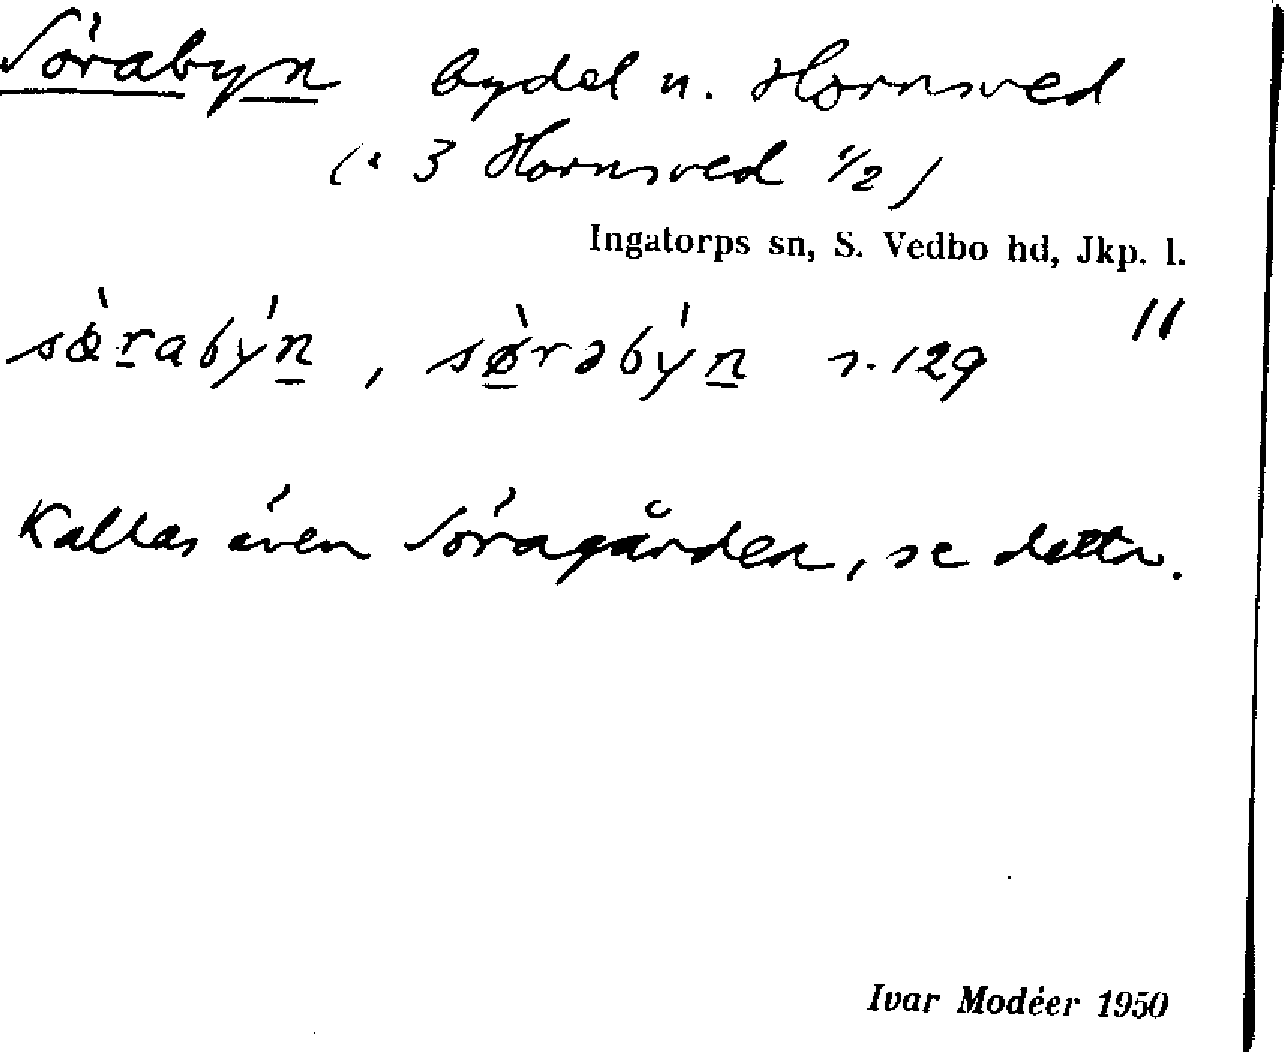 Sörabyn bydel n. Hornsved
(: 3 Hornsved 1/2)
Ingatorps sn, S. Vedbo hd, Jkp. l.
11
sø̀rabýn, sø̀rəbýn s. 129
Kallas även Söragården, se detta.
Ivar Modéer 1950